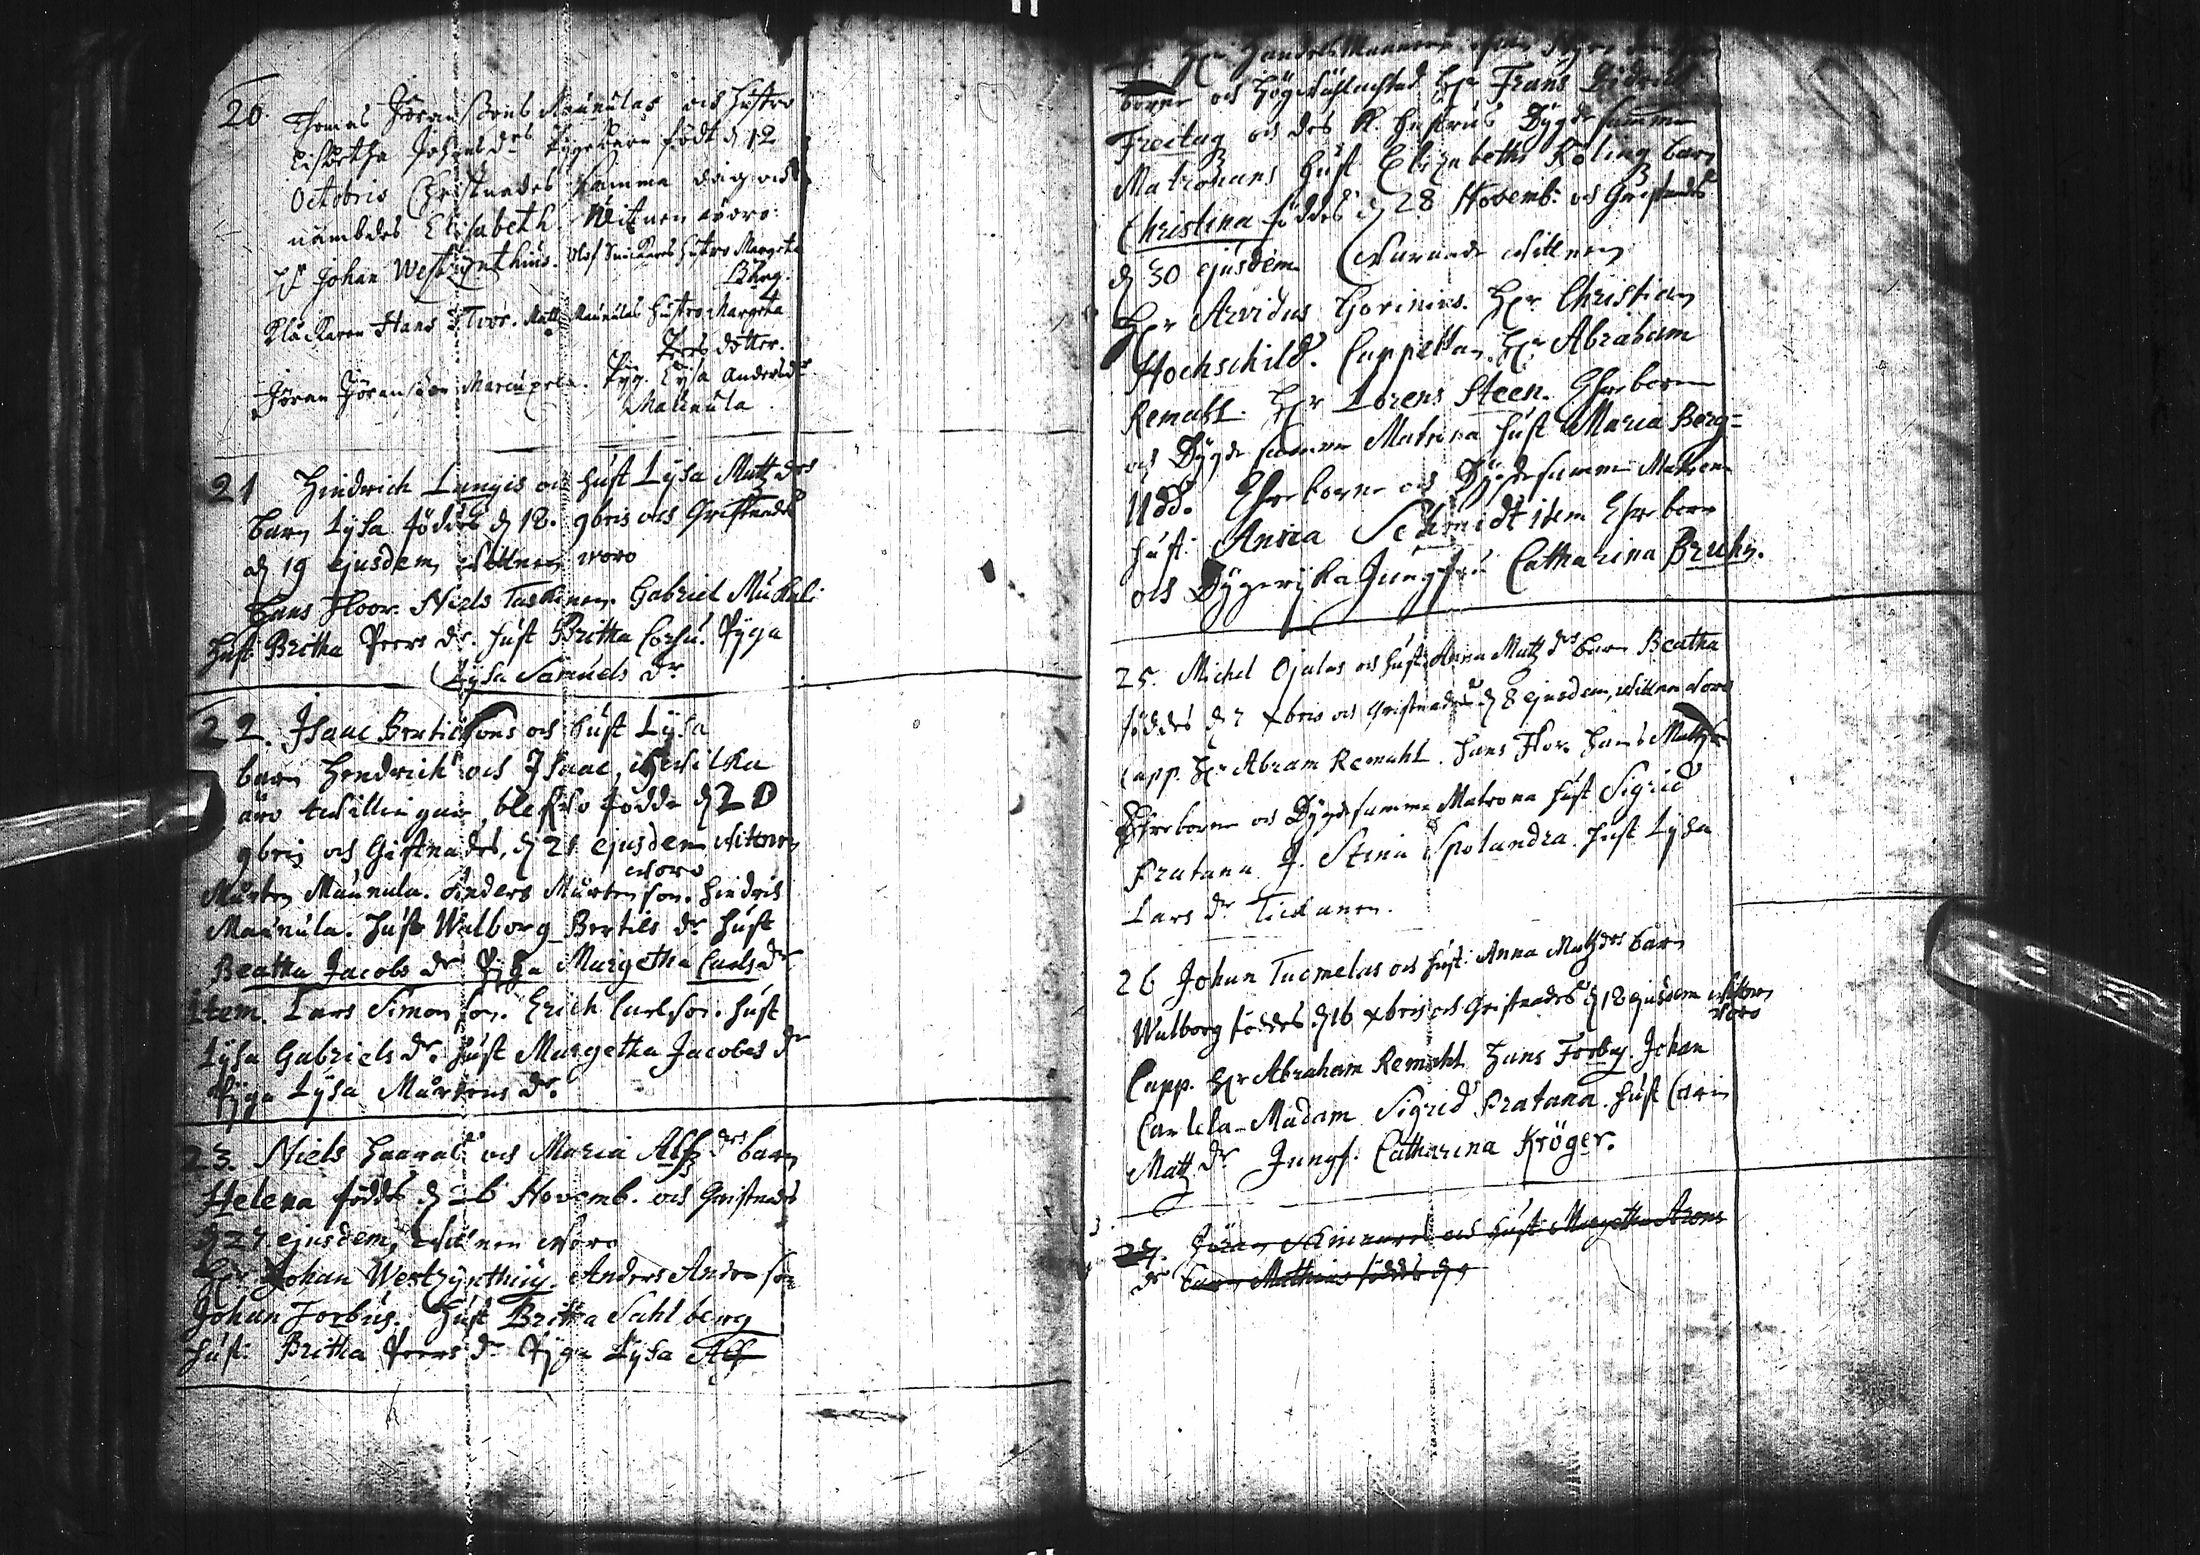 20. Thomas Jöranssons Maunulas och hustro
Lisbetha Johansdr Pygebarn född d 12
Octobris Christnades samma dag och
nämbdes Elisabeth Witnen woro:
Hr Johan Westzynthius. Olof hustro Margeta
Klåckaren Hans Maunulas hustro Margeta
Peers dotter.
Jöran Jöransson Pyg. Lysa Andersdr
Maunula.
21 Hindrich Lungis och hust Lysa Matzdrs
barn Lysa föddes d 18. 9bris och Christnades
d 19 ejusdem, wittnen woro
Hans Floor. Niels Taskinen. Gabriel
Hust Britha Peers dr. hust Britha Corsu. Pyga
Lysa Samuels dr
22. Isaac och hust Lysa
barn Hendrich och Isaac, hwilka
äro twillingar, blefwo födde d 20
9bris och Christnades, d 21 ejusdem witnen
woro
Mårten Maunula. Anders Mårtenson. Hindrich
Maunula. hust Walborg Bertils dr hust
Beatha Jacobs dr Pyga Margetha Carlsdr
item. Lars Simonson. Erich Carlson. hust
Lysa Gabriels dr. hust Margetha Jacobs dr
Pyga Lysa Mårtens dr.
23. Niels och Maria barn
Helena föddes d 26 Novemb. och Christnades
d 27 ejusdem, witnen woro
Hr Johan Westzynthius. Anders Anderson
Johan Forbus. Hust Britha Sahlberg
hust: Britha Peers dr Pyga Lysa Alf
Hr Handels Mannens
och Hr Frans Didrich
Freitag och des K. hustrus Dygdesamme
Matronans hust Elizabeths Röling barn
Christina föddes d 28 Novemb: och Christnades
d 30 ejusdem Warande wittnen
Hr Arvidus Gorinius. Hr Christian
Hochschild. Cappellan Hr Abraham
Remahl. Hr Lorens Steen. Ehreborne
och Dygdesamme Matrona hust Maria Berg=
udd. Ehreborne och Dygdesamme Matrona
hust: Anna Schmidt item Ehreborne
och Dygerijka Jungfru Catharina Bruhn.
25. Michel Ojalas och hust Anna Matzdrs barn Beatha
föddes d 7 xbris och Christnades d 8 ejusdem, wittnen woro
Capp. Hr Abram Remahl. Hans Flor. Hans
Ehreborne och Dygdesamme Matrona hust Sigrid
Pratana J. Stina Spolandra. hust Lysa
Lars dr Tickanen.
26 Johan Tuomelas och hust: Anna Matzdrs barn
Walborg föddes d 16 xbris och Christnades d 18 ejusdem wittnen
woro
Capp. Hr Abraham Remahl Hans Forbus. Johan
Carlela Madam Sigrid Pratana. hust Carin
Matz dr Jungf. Catharina Kröger.
27. Jöran och hust Margetha Arons
dr barn Mathias föddes d 9